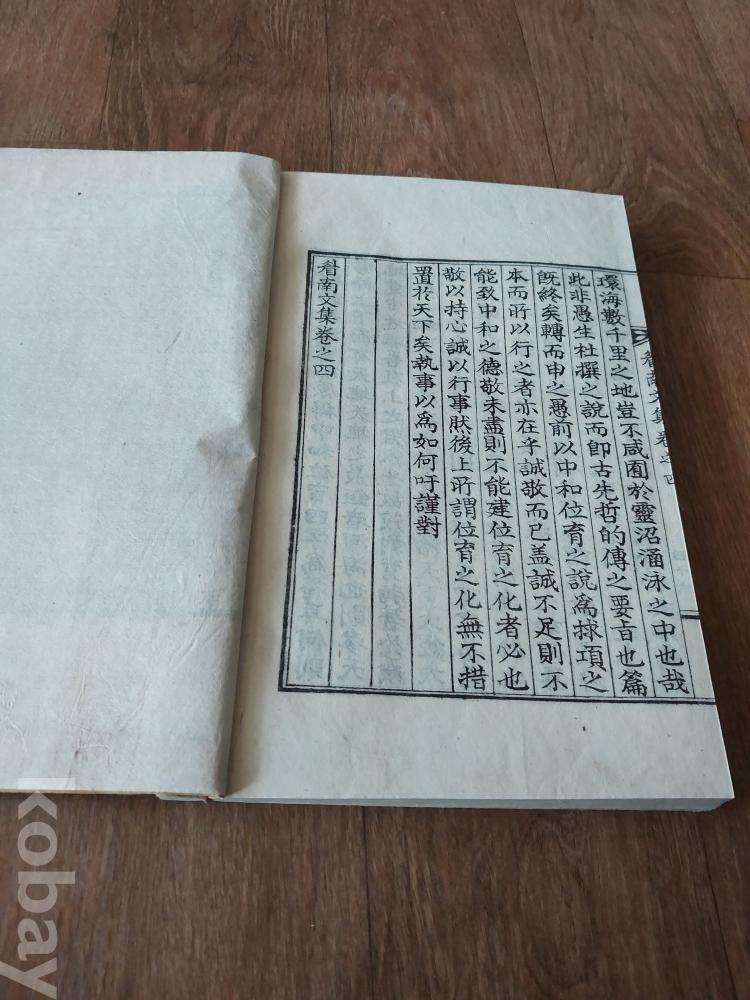 南文集卷之四
環海數千里之地豈不咸囿於靈沼涵泳之中也哉
此非愚生杜撰之說而卽古先哲的傳之要旨也篇
旣終矣轉而申之愚前以中和位育之說爲捄項之
本而所以行之者亦在乎誠敬而已盖誠不足則不
能致中和之德敬未盡則不能建位育之化者必也
敬以持心誠以行事然後上所謂位育之化無不措
置於天下矣執事以爲如何吁謹對
南文集卷之四
kobay